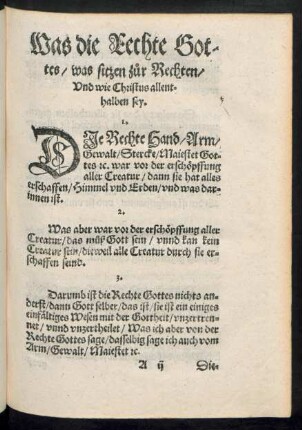 Was die Rechte Got-
tes / was sitzen zůr Rechten /
Vnd wie Christus allent-
halben sey.
1.
DIe Rechte Hand / Arm /
Gewalt / Stercke / Maiestet Got-
tes ꝛc. war vor der erschöpffung
aller Creatur / dann sie hat alles
erschaffen / Himmel vnd Erden / vnd was dar-
innen ist.
2.
Was aber war vor der erschöpffung aller
Creatur / das můß Gott sein / vnnd kan kein
Creatur sein / dieweil alle Creatur durch sie er-
schaffen seind.
3.
Darumb ist die Rechte Gottes nichts an-
derst / dann Gott selber / das ist / sie ist ein einiges
einfältiges Wesen mit der Gottheit / vnzertren-
net / vnnd vnzertheilet / Was ich aber von der
Rechte Gottes sage / dasselbig sage ich auch vom
Arm / Gewalt / Maiestet ꝛc.
A ij Die-